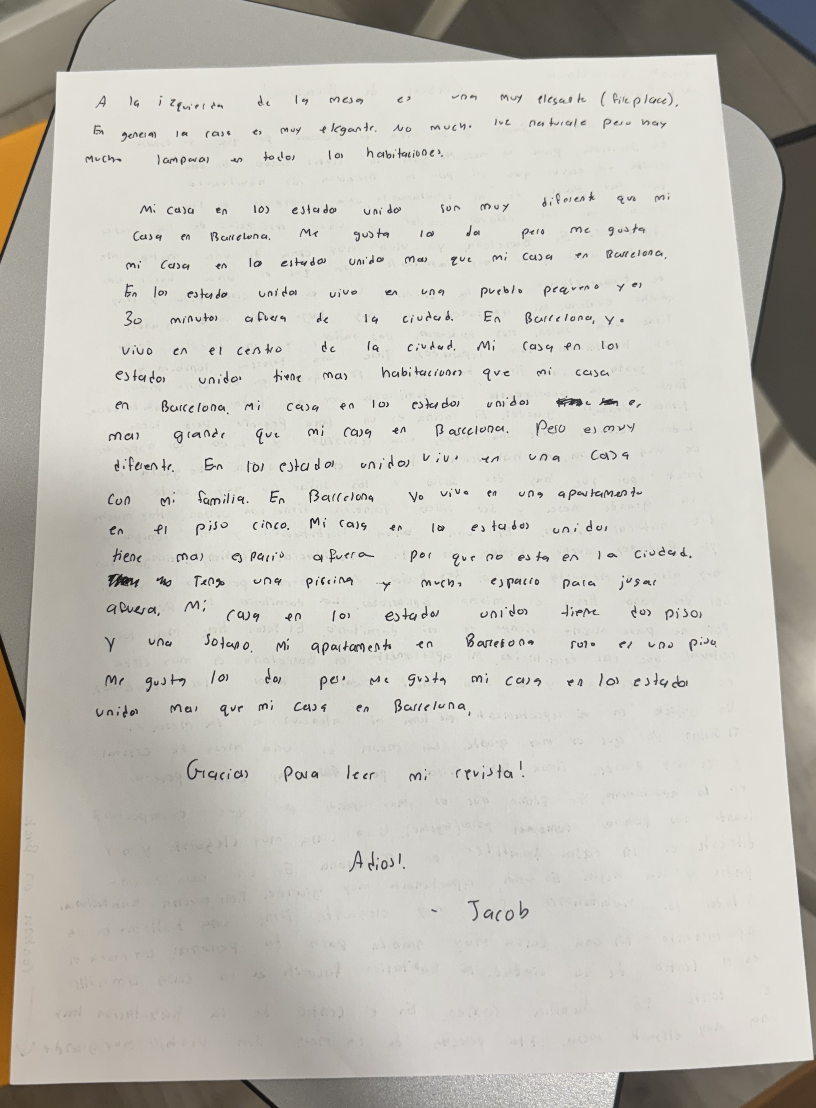 A la izquierda de la mesa es una muy elegante (fireplace).
En general la casa es muy elegante. No mucho luz naturale pero hay
mucho lamparas en todos los habitaciones.
Mi casa en los estado unidos son muy diferent que mi
casa en Barcelona. Me gusta los dos pero me gusta
mi casa en los estados unidos mas que mi casa en Barcelona.
En los estado unidos vivo en una pueblo pequeno y es
30 minutos afuera de la ciudad. En Barcelona, yo
vivo en el centro de la ciudad. Mi casa en los
estados unidos tiene mas habitaciones que mi casa
en Barcelona. Mi casa en los estados unidos es
mas grande que mi casa en Barcelona. Pero es muy
diferente. En los estados unidos vivo en una casa
con mi familia. En Barcelona Yo vivo en una apartamento
en el piso cinco. Mi casa en los estados unidos
tiene mas espacio afuera por que no esta en la ciudad.
Tengo una piscina y mucho espacio para jugar
afuera. Mi casa en los estados unidos tiene dos pisos
y una sotano. Mi apartamento en Barcelona solo es uno piso
Me gusta los dos pero Me gusta mi casa en los estados
unidos mas que mi casa en Barcelona.
Gracias para leer mi revista!
Adios!
- Jacob